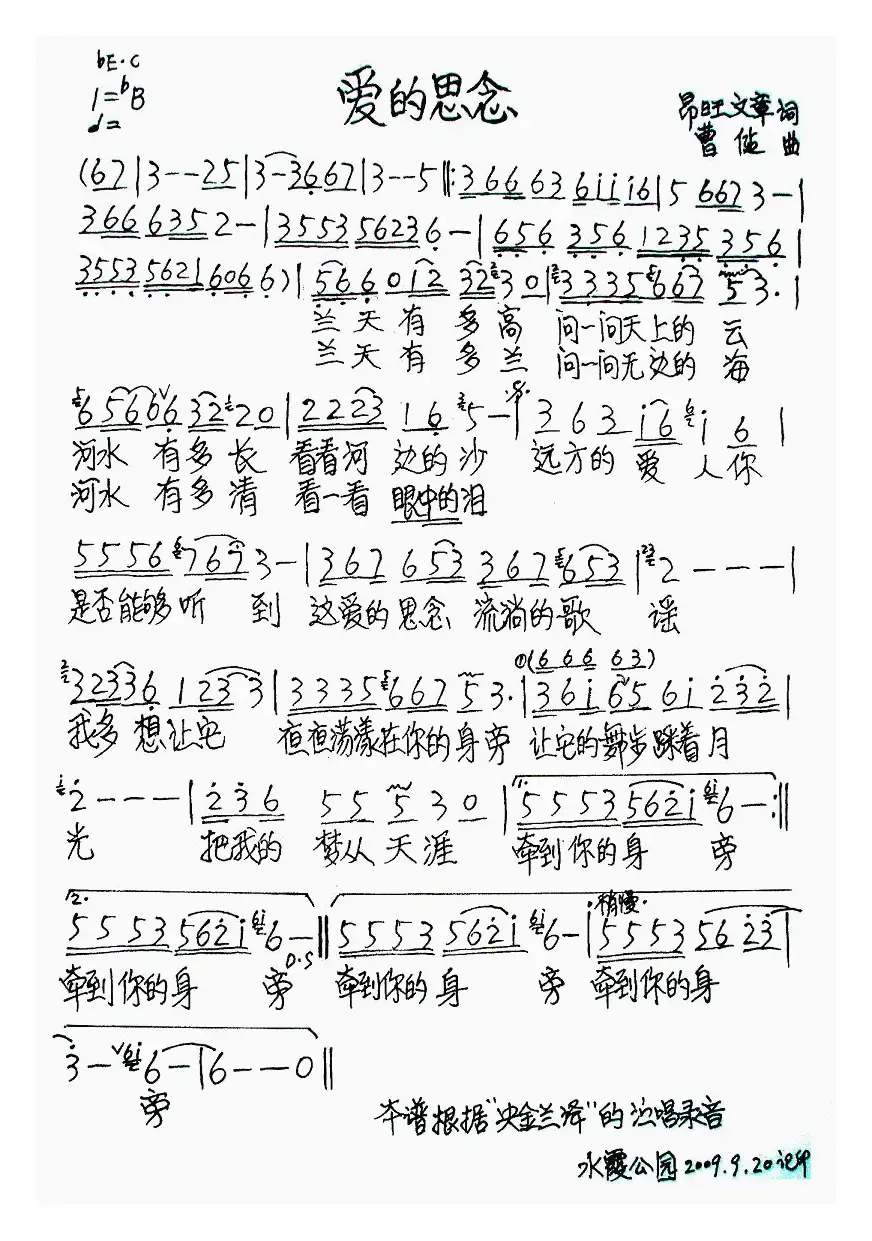 bE·C
1=bB
爱的思念
昂旺文章词
曹 曲
(67|3--25|3-3667|3--5‖:36663 6iii6|5 6673-|
3666352-|3553 56236-|656 356 1235 356|
3553 5621 6066 6)|566012 3230|3335667 53·|
兰天有多高 问一问天上的云
兰天有多兰 问一问无边的海
65666 3220|2223 16 5-|363 i6 i6|
河水有多长 看看河边的沙 远方的爱人你
河水有多清 看一看眼中的泪
5556 767 3-|367 653 367 653|2---|
是否能够听到 这爱的思念 流淌的歌谣
①(666 63)
32336 1233|3335 667 53·|36i 65 6i 232|
我多想让它 夜夜荡漾在你的身旁 让它的舞步踩着月
2---|236 55 530|1.5553 562i 6-:‖
光 把我的梦从天涯 牵到你的身旁
2.
5553 562i 6-‖5553 562i 6-|稍慢 5553 56 23|
D.S
牵到你的身旁 牵到你的身旁 牵到你的身
3-6-|6--0‖
旁
本谱根据"央金兰泽"的演唱录音
水霞公园2009.9.20记